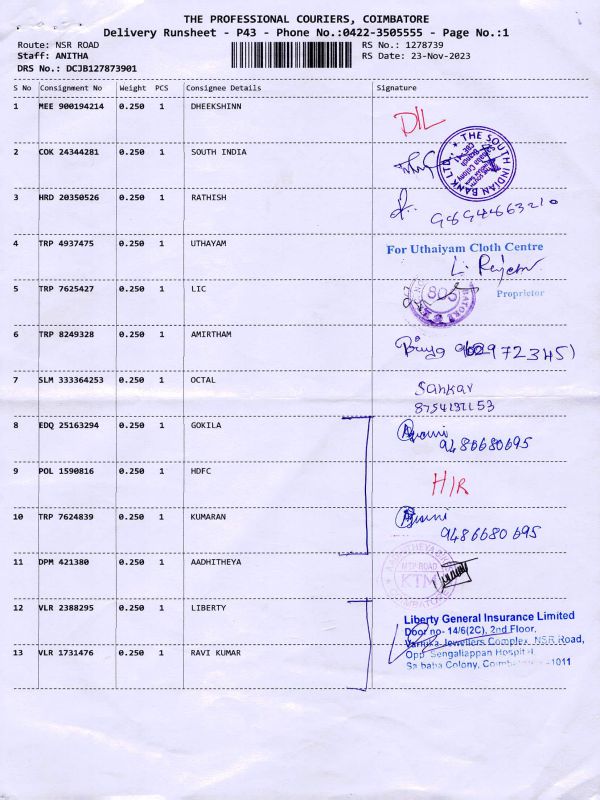 THE PROFESSIONAL COURIERS, COIMBATORE
Delivery Runsheet - P43 - Phone No.:0422-3505555 - Page No.:1
Route: NSR ROAD RS No.: 1278739
Staff: ANITHA RS Date: 23-Nov-2023
DRS No.: DCJB127873901
S No Consignment No Weight PCS Consignee Details Signature
1 MEE 900194214 0.250 1 DHEEKSHINN
DIL
2 COK 24344281 0.250 1 SOUTH INDIA
THE SOUTH INDIAN BANK LTD.
3 HRD 20350526 0.250 1 RATHISH
9894663210
4 TRP 4937475 0.250 1 UTHAYAM
For Uthaiyam Cloth Centre
Proprietor
5 TRP 7625427 0.250 1 LIC
6 TRP 8249328 0.250 1 AMIRTHAM
7 SLM 333364253 0.250 1 OCTAL
Sankar
8 EDQ 25163294 0.250 1 GOKILA
9486680695
9 POL 1590816 0.250 1 HDFC
H/R
10 TRP 7624839 0.250 1 KUMARAN
9486680695
11 DPM 421380 0.250 1 AADHITHEYA
NSR ROAD
KTM
COIMBATORE
12 VLR 2388295 0.250 1 LIBERTY
Liberty General Insurance Limited
Door no- 14/6(2C), 2nd Floor,
Varnika Jewellers Complex, NSR Road,
13 VLR 1731476 0.250 1 RAVI KUMAR
Opp. Sengaliappan Hospital,
Sai baba Colony, 1011